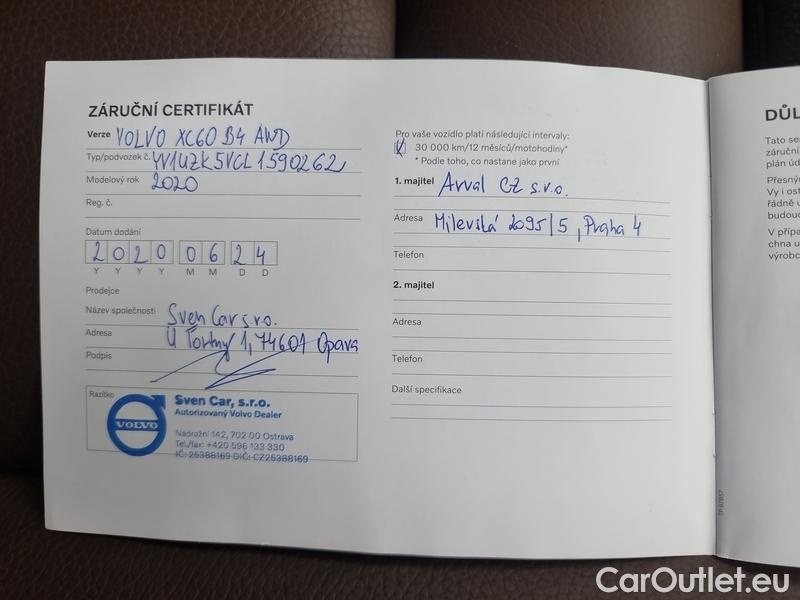 ZÁRUČNÍ CERTIFIKÁT
Verze VOLVO XC60 B4 AWD
Typ/podvozek č. YV1UZK5VCL1590262
Modelový rok 2020
Reg. č.
Datum dodání
2 0 2 0 0 6 2 4
Y Y Y Y M M D D
Prodejce
Název společnosti Sven Car s.r.o.
Adresa U Tortny 1, 74601 Opava
Podpis
Razítko
VOLVO
Sven Car, s.r.o.
Autorizovaný Volvo Dealer
Nádražní 142, 702 00 Ostrava
Tel./fax: +420 596 133 330
IČ: 25388169 DIČ: CZ25388169
Pro vaše vozidlo platí následující intervaly:
30 000 km/12 měsíců/motohodiny*
* Podle toho, co nastane jako první
1. majitel Arval CZ s.r.o.
Adresa Milevská 2095/5, Praha 4
Telefon
2. majitel
Adresa
Telefon
Další specifikace
DŮL
Tato se
záruční
plán úd
Přesným
Vy i ost
řádně u
budouc
V přípa
chna u
výrobc
CarOutlet.eu